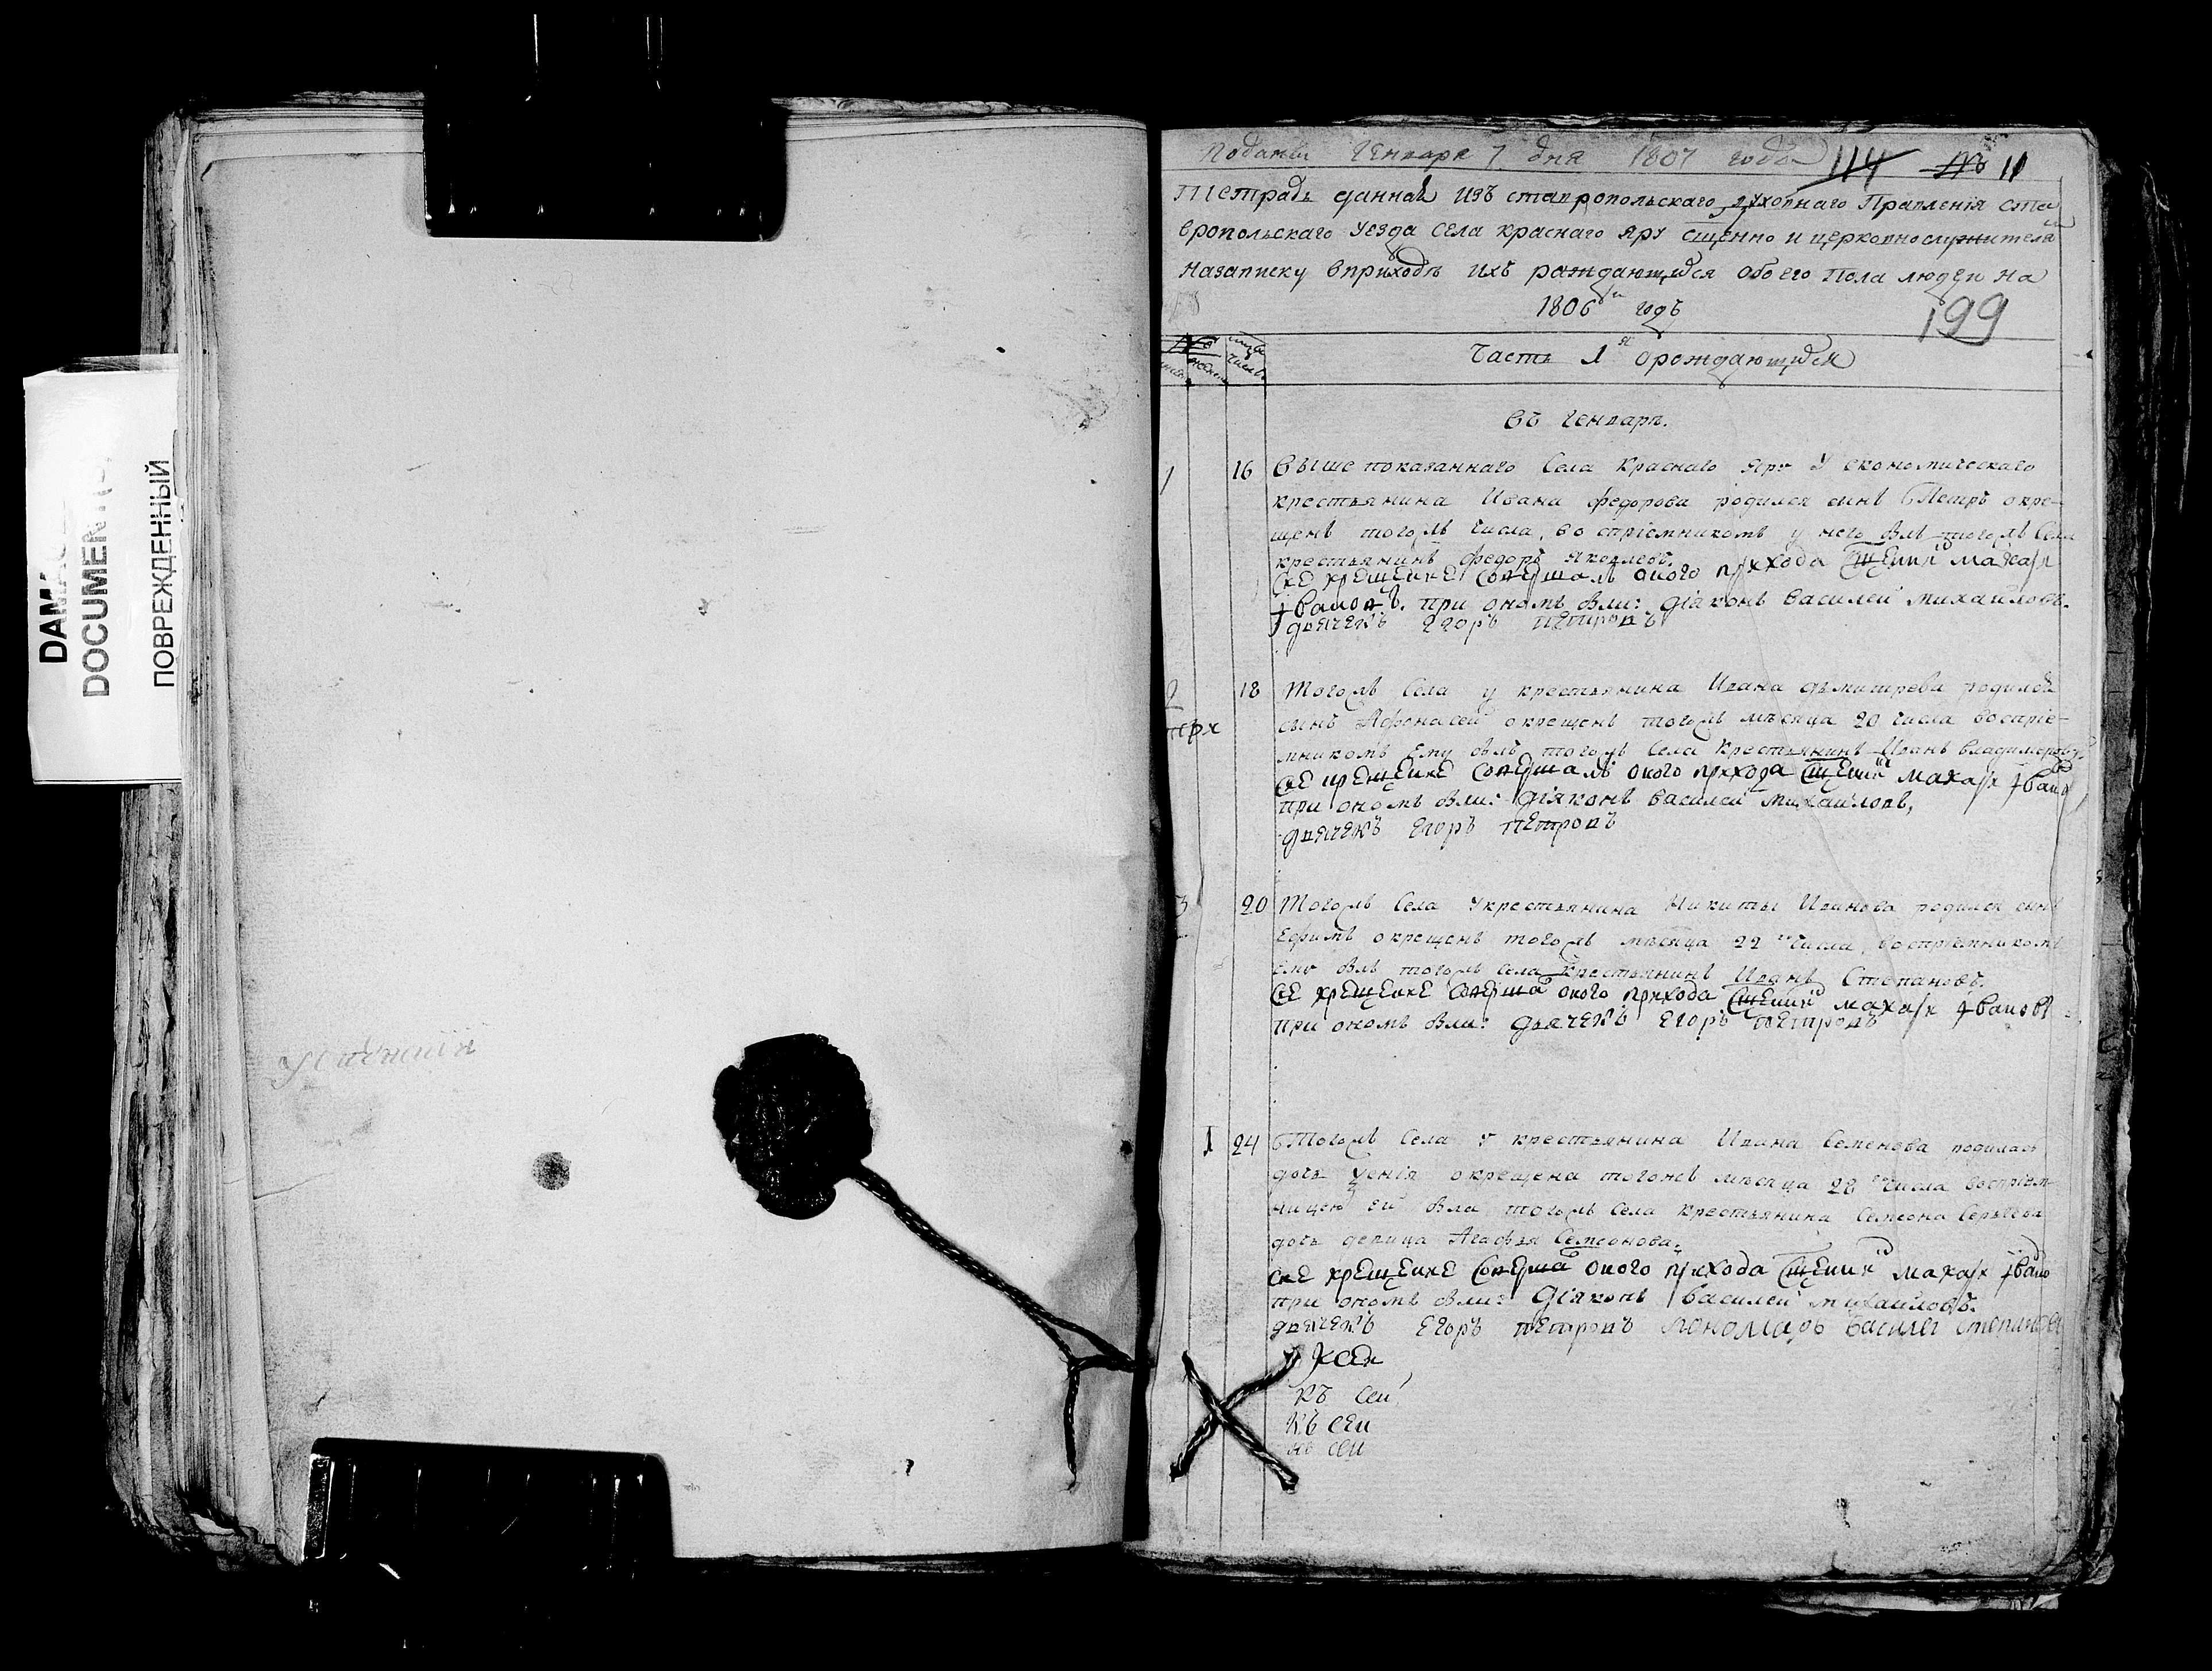 DAMA
DOCUMENT
ПОВРЕЖДЕННЫЙ
Поданы Генваря 7 дня 1807 года 114 11
Тетрадь данная изъ ставропольскаго духовнаго Правленія ста
вропольскаго уезда села краснаго яру сщенно и церковнослужителя
назаписку вприходѣ ихъ раждающихся обоего пола людей на
1806 годъ
199
Часть 1я ораждающихся
въ генварѣ.
1 16 Выше показаннаго Села Краснаго яру у економическаго
крестьянина Ивана федорова родился сынъ Петръ окре-
щенъ тогожъ числа, воспріемникомъ у него былъ тогожъ Села
крестьянинъ федоръ Яковлевъ.
сие крещение совершалъ оного прихода сщенникъ макарии
ивановъ. при ономъ были: діяконъ василеи михаиловъ.
дьячекъ егоръ петровъ
2 18 Тогожъ Села у крестьянина Ивана дьмитрева родился
сынъ Афонасеи окрещенъ тогожъ мѣсяца 20 числа воспріе-
мникомъ ему былъ тогожъ Села Крестьянинъ Иванъ владимеровъ
сие крещение совершалъ оного прихода сщенникъ макарии ивано
при ономъ были: діяконъ василеи михаиловъ,
дьячекъ егоръ петровъ
3 20 Тогожъ Села укрестьянина Никиты Иванова родился сынъ
Ефимъ окрещенъ тогожъ мѣсяца 22 числа, воспріемникомъ
ему былъ тогожъ села крестьянинъ Иванъ Степановъ.
сие крещение соверша оного прихода сщенникъ макарии ивановъ
при ономъ были: дьячекъ егоръ петровъ
1 24 Тогожъ Села у крестьянина Ивана Семенова родилась
дочь окрещена тогожъ мѣсяца 28 числа воспріем-
ницею ей была тогожъ Села крестьянина Семсона Сергеева
дочь девица Агафья Семсонова.
сие крещение соверша оного прихода сщенникъ макарии ивано
при ономъ были: діяконъ василеи михаиловъ.
дьячекъ егоръ петровъ пономарь василеи
къ сеи
къ сеи
сеи